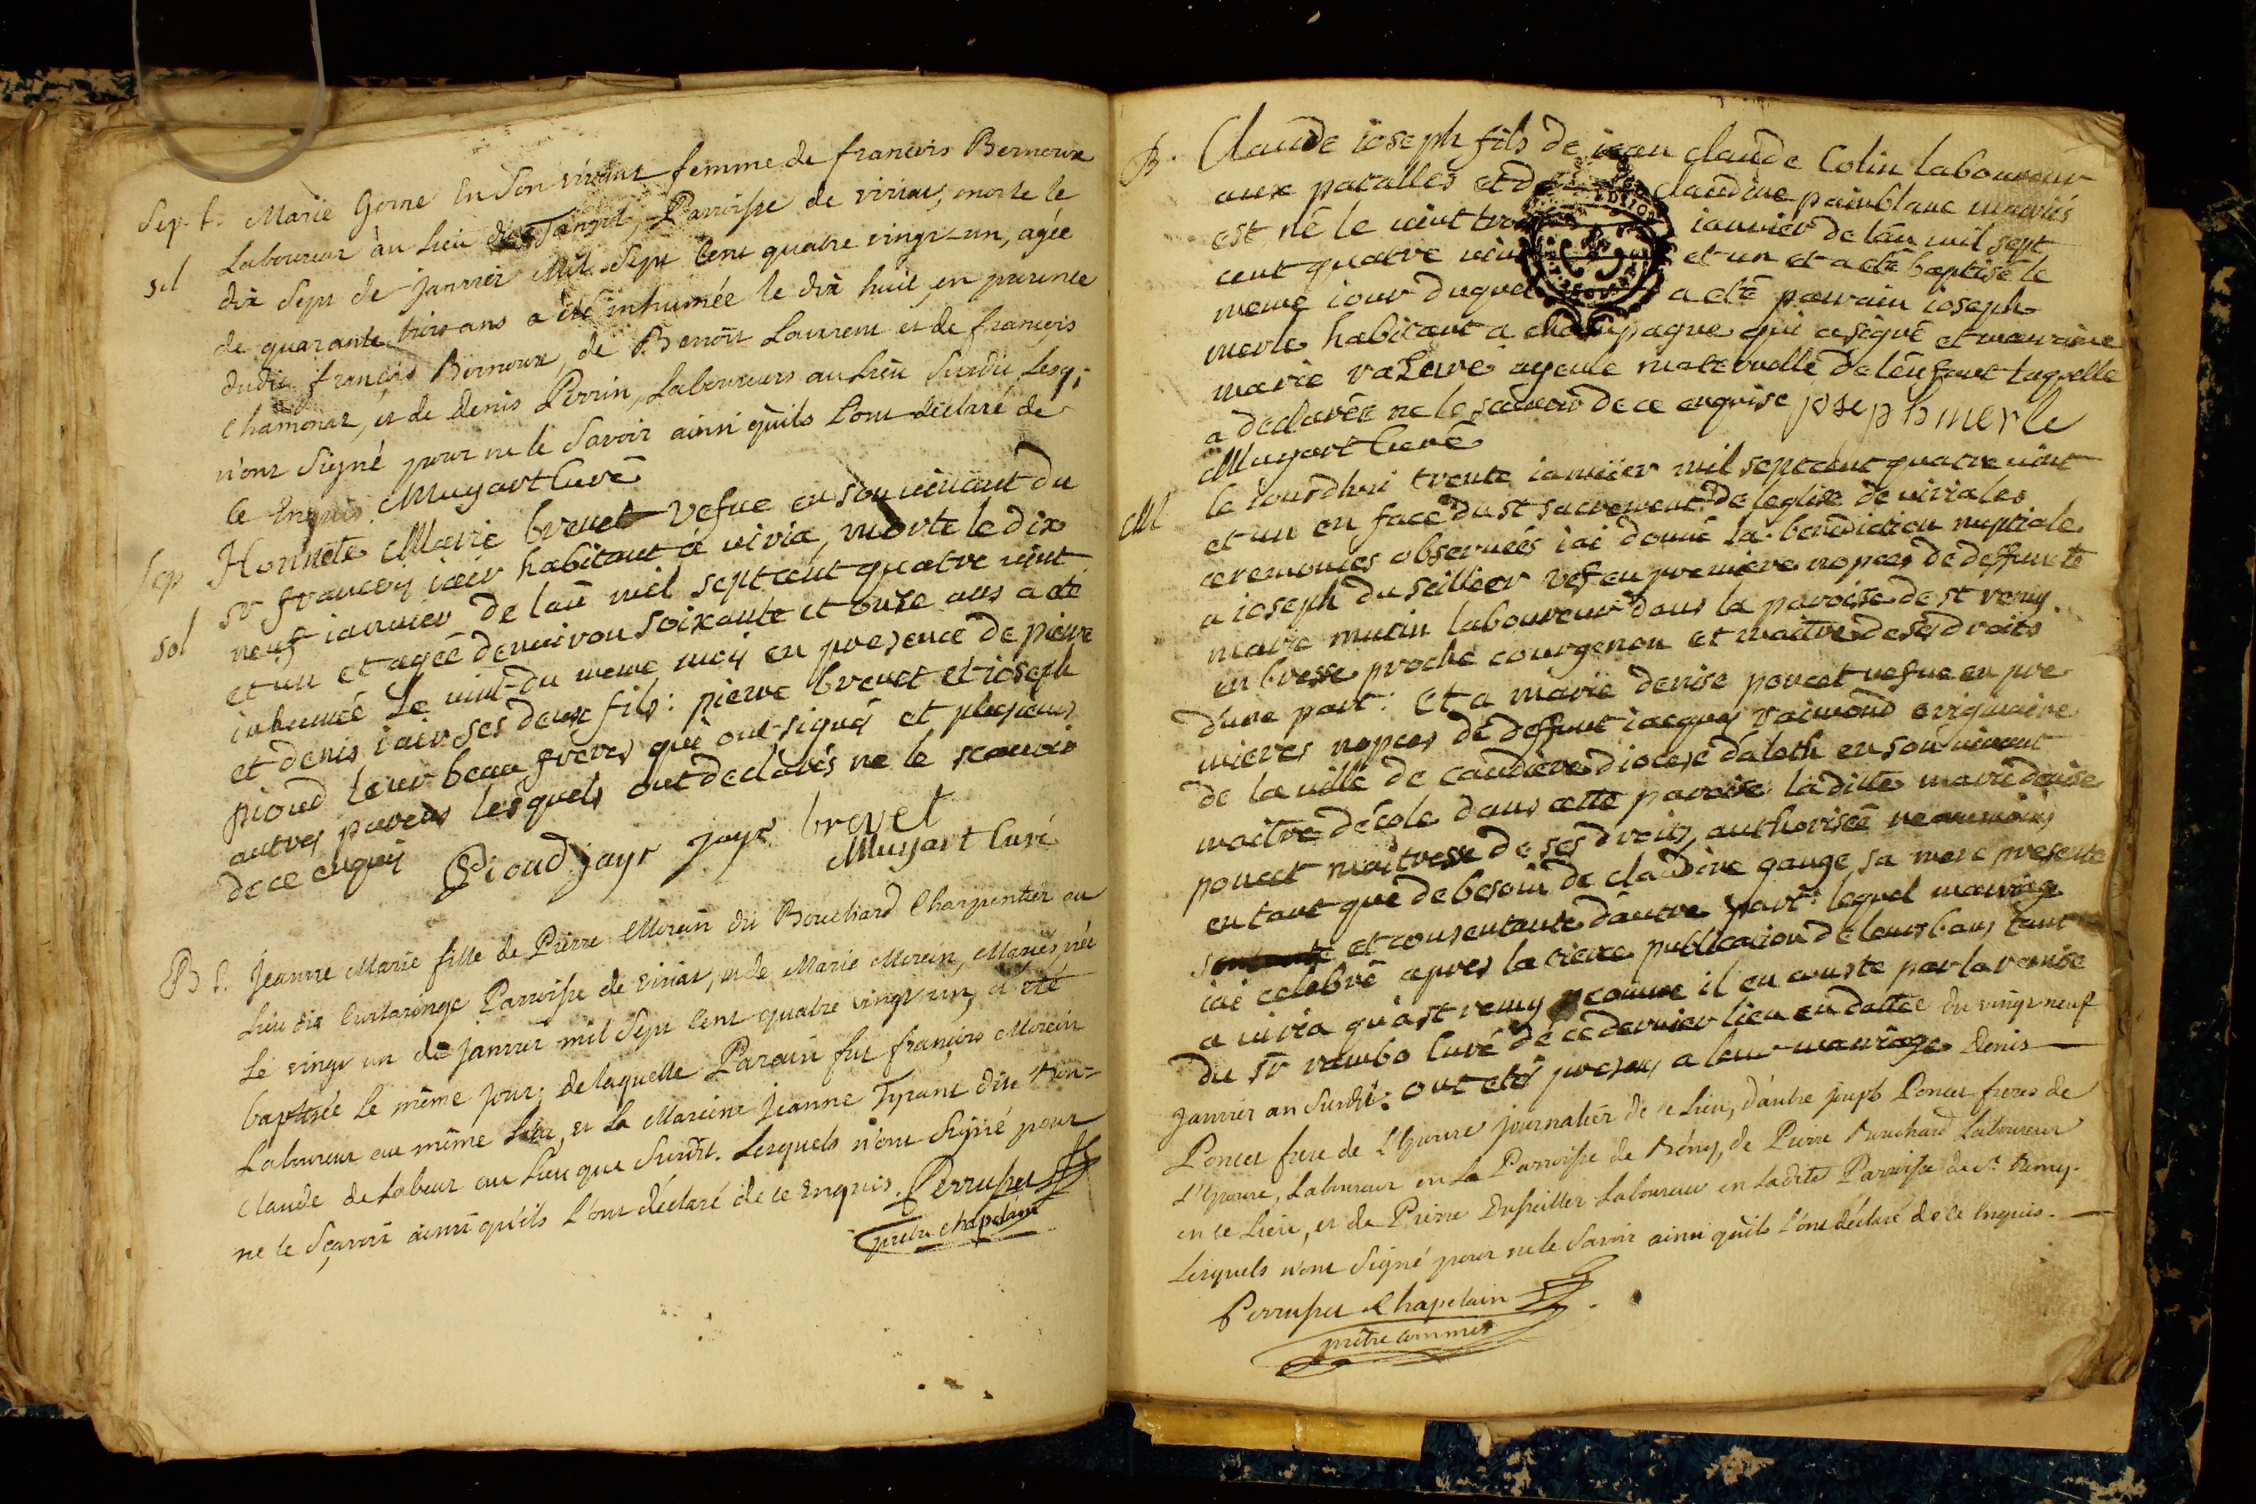 Sep. t. Marie Gorne En Son vivant femme de francois Bernoux
Laboureur au Lieu dit Tanvol, Parroisse de viriat, morte le
sol dix Sept de Janvier Mil Sept Cent quatre vingt-un, agée
de quarante trois ans a été inhumée le dix huit, en presence
dudit francois Bernoux, de Benoit Laurent et de francois
Chamonar, et de Denis Perrin, Laboureurs au Lieu Surdit, Lesq;
n'ont Signé pour ne le Savoir ainsi qu'ils l'ont déclaré de
Ce Enquis. Muyart Curé
Sep Honnete Marie brevet vefue en son viuant du
sr francois iair habitant a viria, morte le dix
sol neuf ianuier de lan mil sept cent quatre vint
et un et agée denuiron soixante et onze ans a été
inhumée le vint du meme mois en presence de pierre
et denis iair ses deux fils: pierre brevet et ioseph
pioud leur beau freres qui ont signés et plusieurs
autres parens lesquels ont declarés ne le scauoir
de ce enquis Pioud jayr jayr brevet
Muyart Curé
B t. Jeanne Marie fille de Pierre Morein dit Bouchard Charpentier au
Lieu dit Curtaringe Parroisse de viriat, et de Marie Morein, Mariés, née
Le vingt un de Janvier mil Sept Cent quatre vingt un, a été
baptisée Le même jour; de laquelle Parain fut francois Morein
Laboureur au même Lieu, et La Mareine Jeanne Tyrant dite
Claude de Labeur au Lieu que Surdit. Lesquels n'ont Signé pour
ne le Sçavoir ainsi qu'ils l'ont déclaré de ce Enquis. Perruset
pretre chapelain
B. Claude ioseph fils de iean claude Colin laboureur
aux paralles et de claudine painblanc mariés
est né le vint ianvier de lan mil sept
cent quatre et un et a été baptisé le
meme iour duquel a été parrain ioseph
merle habitant a champagne qui a signé et marraine
marie ayeule maternelle de lenfant laquelle
a declarée ne le scauoir de ce enquise joseph merle
Muyart Curé
M le iourdhui trente ianuier mil sept cent quatre vint
et un en face du st sacrement de leglise de viria les
ceremonies obseruées iai donné la benediction nuptiale
a ioseph dusailleer vef en premiere nopces de deffuncte
marie mutin laboureur dans la paroisse de st remy
en bresse proche courgenon et maitre de ses droits
d'une part: et a marie denise poncet vefue en pre
mieres nopces de deffunt iacques Raimond originaire
de la ville de caudiere diocese daleth en son viuant
maitre décole dans cette paroisse: la ditte marie denise
poncet maitresse de ses droits, authorisée neanmoins
en tant que de besoin de cladine gauge sa mere presente
et consentante d'autre part: lequel mariage
iai celebré apres la tierce publication de leurs bans tant
a viria qu'a st remy comme il en conste par la remise
du sr rambo Curé de ce dernier lieu en datte du vingt neuf
Janvier an Surdit: ont étés presens a leur mariage Denis
Poncet frere de L'Epouse journalier de ce Lieu, d'autre joseph Poncet freres de
L'Epouse, Laboureur en La Parroisse de Rémy, de Pierre Bouchard Laboureur
en ce Lieu, et de Pierre Dusseiller Laboureur en Ladite Parroisse de St. Remy.
Lesquels n'ont Signé pour ne le Savoir ainsi qu'ils l'ont déclaré de Ce Enquis.
Perruset Chapelain
prêtre commis